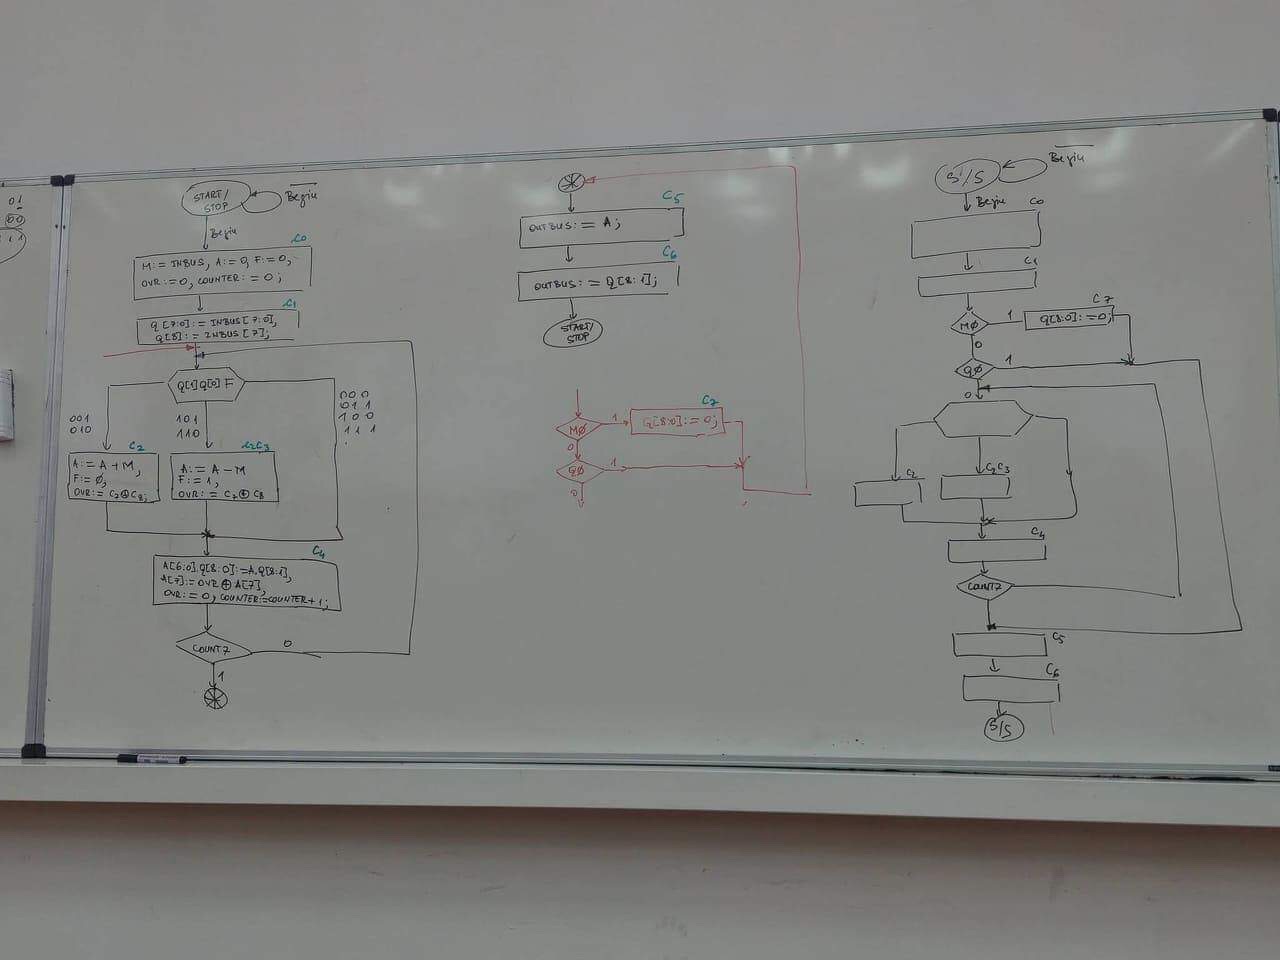 01
00
START/
STOP
Begin
Begin
C0
M:= INBUS, A:=0, F:=0,
OVR:=0, COUNTER:=0;
C1
Q[7:0]:= INBUS[7:0],
Q[8]:= INBUS[7];
Q[1]Q[0] F
001
010
101
110
000
011
100
111
C2
A:= A+M,
F:=Ø,
OVR:= C7⊕C8;
C2C3
A:= A-M
F:=1,
OVR:= C7⊕C8
C4
A[6:0].Q[8:0]:=A.Q[8:1],
A[7]:=OVR⊕A[7],
OVR:=0, COUNTER:=COUNTER+1;
COUNT7
0
1
C5
OUTBUS:= A;
C6
OUTBUS:= Q[8:1];
START/
STOP
MØ
1
C7
Q[8:0]:=0;
0
QØ
1
0
S/S
Begin
Begin
C0
C1
MØ
1
C7
Q[8:0]:=0;
0
QØ
1
0
C2
C2C3
C4
COUNT7
C5
C6
S/S